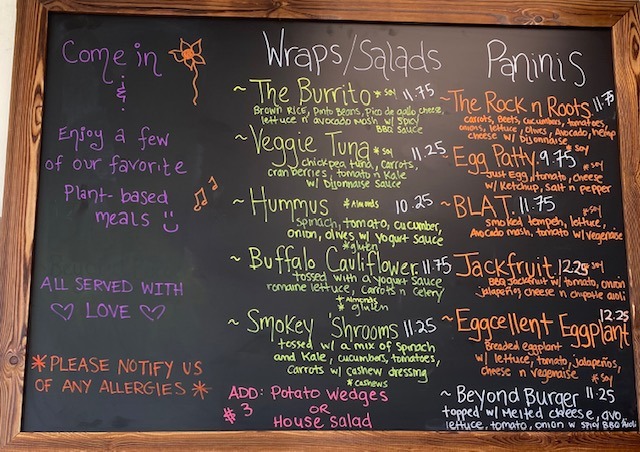 Come in
&
Enjoy a few
of our favorite
Plant-based
meals
ALL SERVED WITH
LOVE
*PLEASE NOTIFY US
OF ANY ALLERGIES *
Wraps/Salads
~ The Burrito *soy 11.75
Brown Rice, Pinto Beans, Pico de gallo, cheese,
lettuce n avocado mash w/ spicy
BBQ sauce
~ Veggie Tuna *soy 11.25
chickpea tuna, carrots,
cranberries, tomato n Kale
w/ Dijonnaise sauce
~ Hummus *Almonds 10.25
spinach, tomato, cucumber,
onion, olives w/ yogurt sauce
*gluten
~ Buffalo Cauliflower 11.75
tossed with a yogurt sauce
romaine lettuce, carrots n celery
*Almonds
*gluten
~ Smokey 'Shrooms 11.25
tossed w/ a mix of spinach
and Kale, cucumbers, tomatoes,
carrots w/ cashew dressing
*cashews
ADD: Potato Wedges
$3 OR
House Salad
Paninis
~The Rock n Roots 11.75
carrots, Beets, cucumbers, tomatoes,
onions, lettuce, olives, Avocado, hemp
cheese w/ Dijonnaise
~Egg Patty 9.75 *soy
Just Egg, tomato, cheese
w/ Ketchup, salt n pepper
~BLAT 11.75 *soy
smoked tempeh, lettuce,
Avocado mash, tomato w/ vegenaise
~Jackfruit 12.25 *soy
BBQ Jackfruit w/ tomato, onion
jalapeños cheese n chipotle aioli
~Eggcellent Eggplant 12.25
Breaded eggplant
w/ lettuce, tomato, jalapeños,
cheese n vegenaise
*soy
~ Beyond Burger 11.25
topped w/ melted cheese, avo,
lettuce, tomato, onion w spicy BBQ Aioli